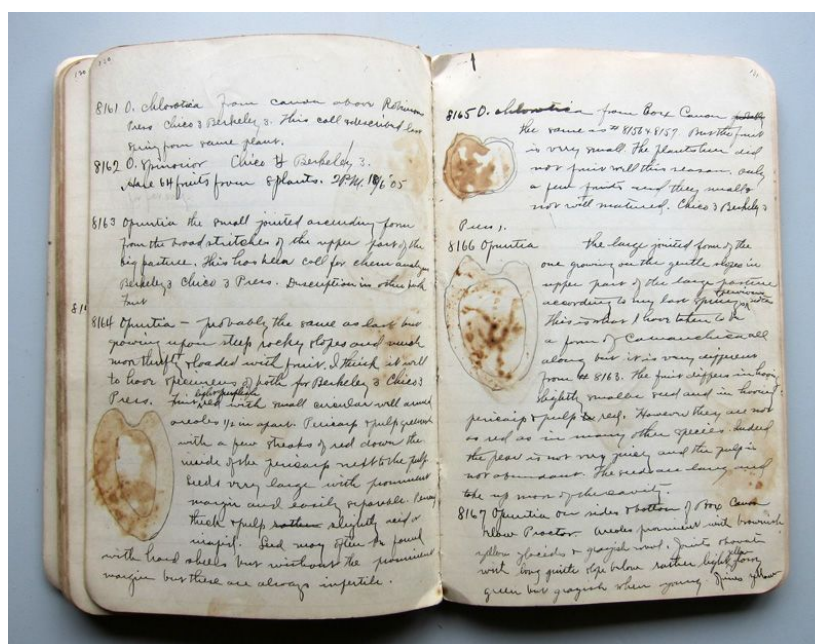 8161 O. chlorotica from canon above Robinson
Press Chico 3 Berkeley 3. This coll & described last
spring from same plant.
8162 O. spinosior Chico 4 Berkeley 3.
Have 64 fruits from 8 plants. 2 P.M. 10/6 '05
8163 Opuntia the small jointed ascending form
from the broad stretches of the upper part of the
big pasture. This has been coll for chem analysis
Berkeley 3 Chico 3 Press. Description in other book
Fruit
8164 Opuntia — probably the same as last but
growing upon steep rocky slopes and much
more thrifty & loaded with fruit. I think it will
to have specimens of both for Berkeley 3 Chico 3
Press. Fruit red with small circular well armed
areoles 1/2 in apart. Pericarp & pulp greenish
with a few streaks of red down the
inside of the pericarp next to the pulp
Seeds very large with prominent
margin and easily separable.
thick & pulp rather slightly acid or
insipid. Seed may often be found
with hard shells but without the prominent
margin but these are always infertile.
8165 O. chlorotica from Box Canon
the same as # 8156 & 8157. But the fruit
is very small. The plants here did
not fruit well this season, only
a few fruits and they small &
not well matured. Chico 3 Berkeley 3
Press 1.
8166 Opuntia the large jointed form of the
one growing on the gentle slopes in
upper part of the large pasture
according to my last spring's notes
this is what I have taken to be
a form of Camanchica all
along but it is very different
from # 8163. The fruit differs in having
slightly smaller seed and in having
pericarp & pulp red. However they are not
as red as in many other species. Indeed
the pear is not very juicy and the pulp is
not abundant. The seeds are large and
take up most of the cavity
8167 Opuntia on sides & bottom of Box Canon
near Proctor. Areoles prominent with brownish
yellow glochids & grayish wool. Joints obovate
with long gentle slope below rather light yellow
green but grayish when young. Spines yellow